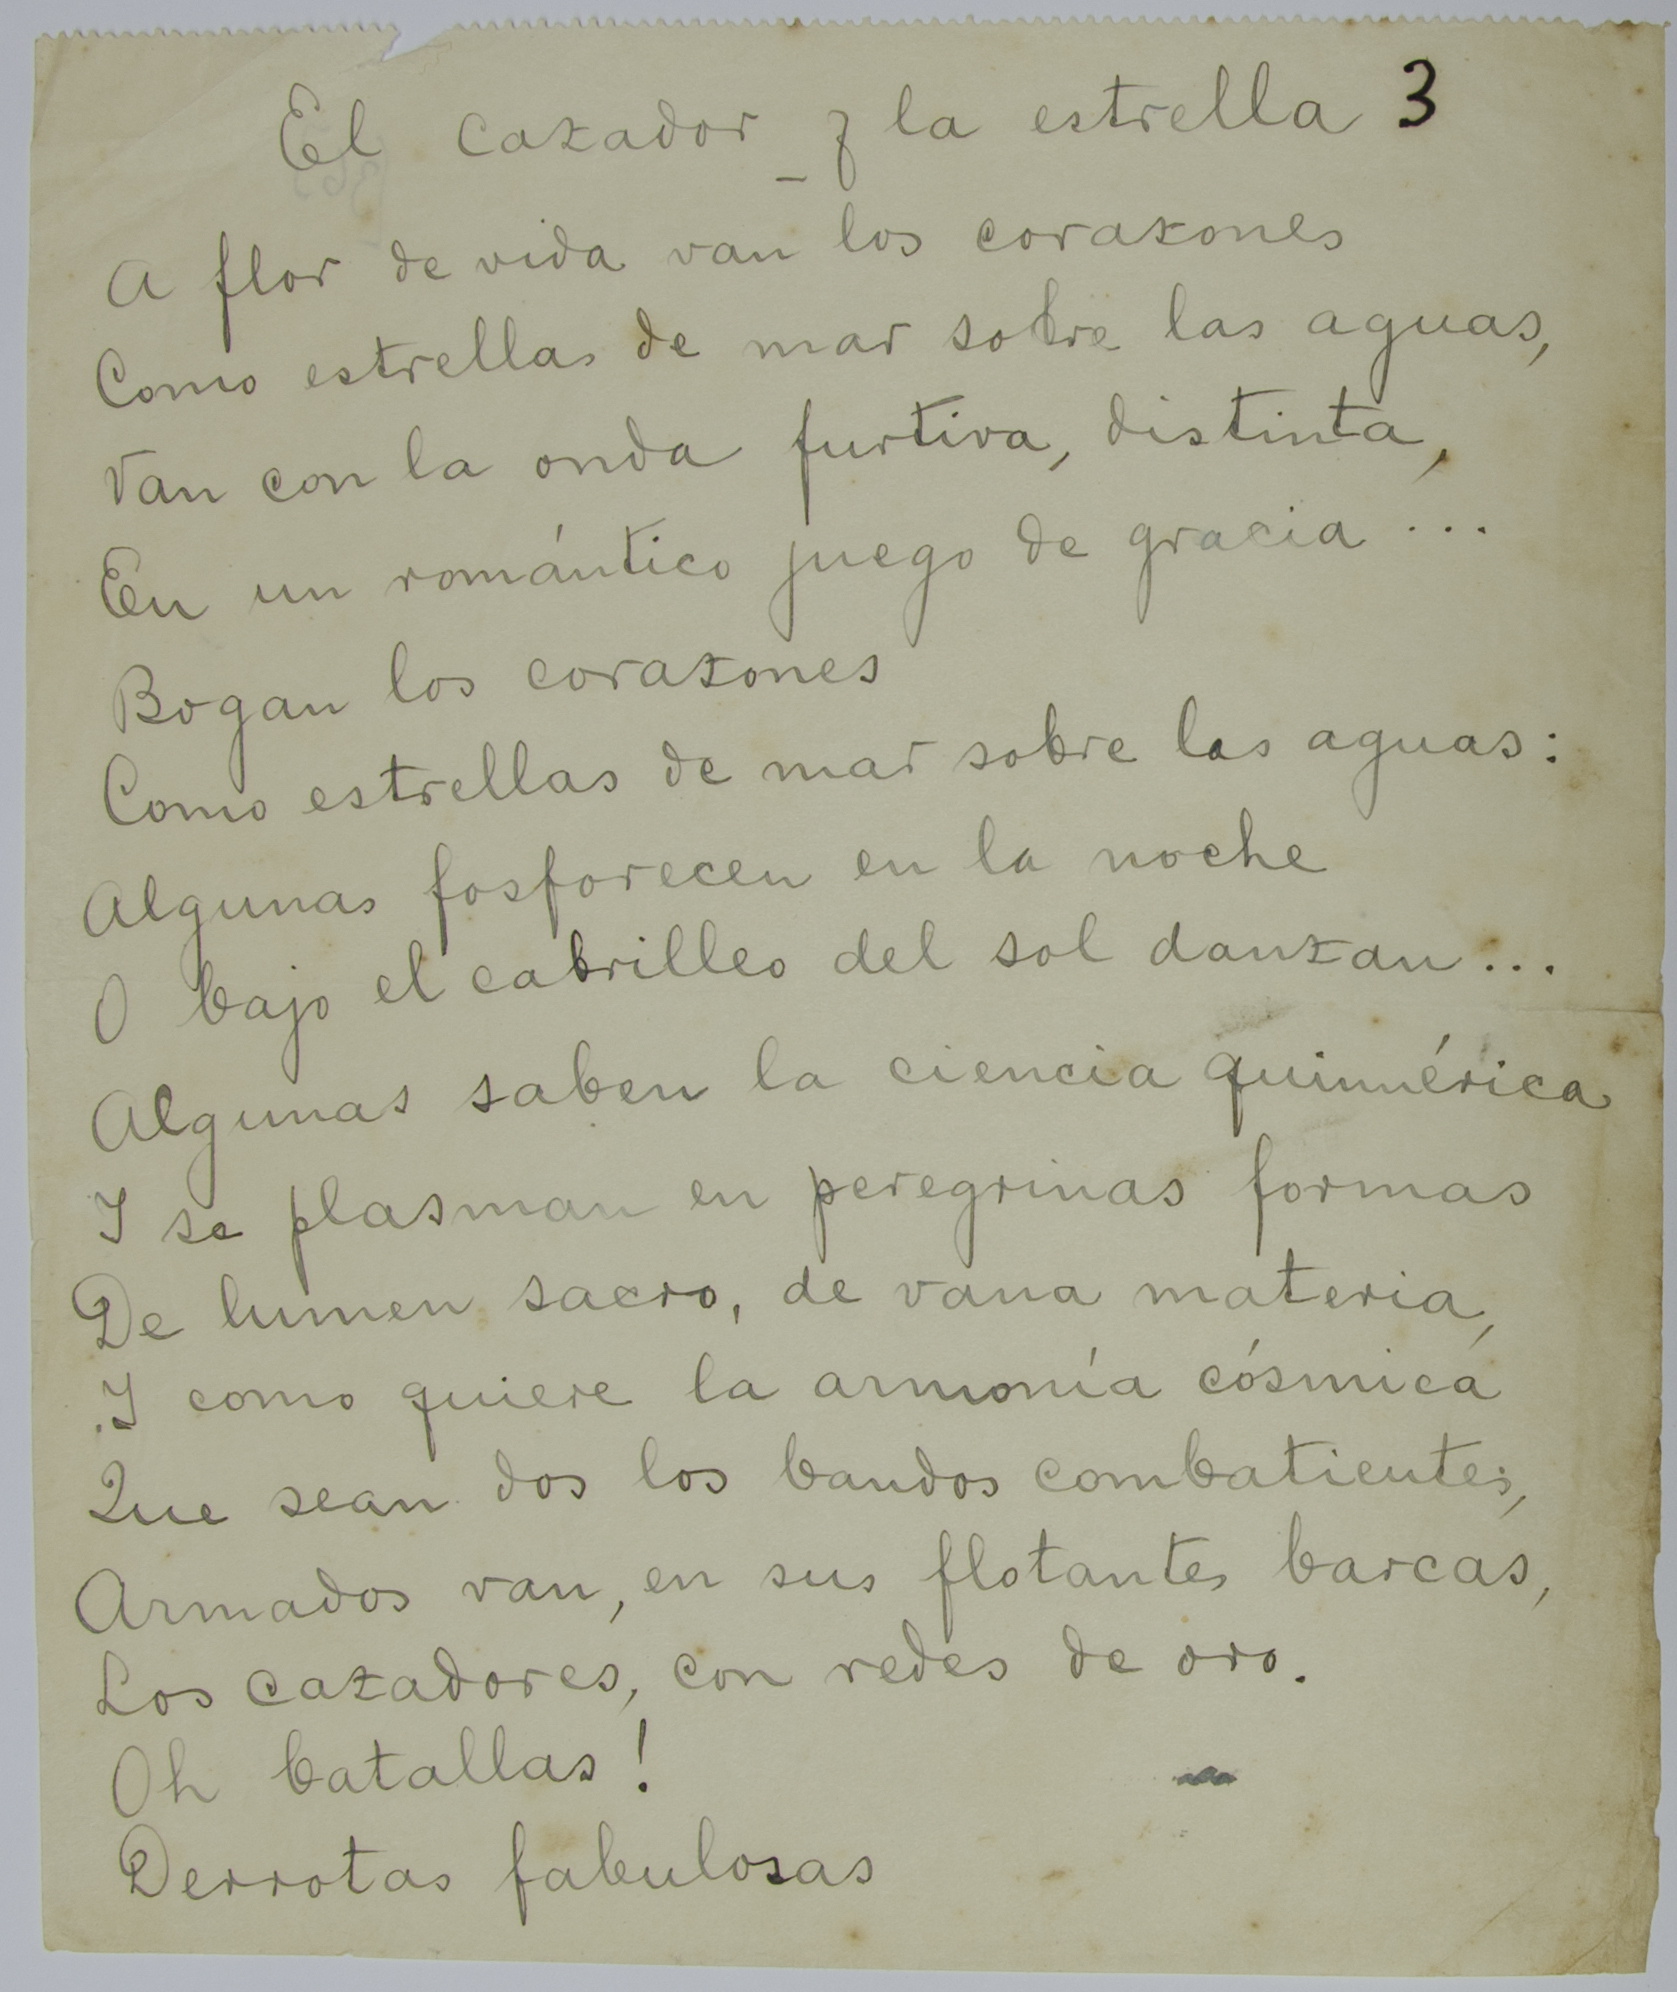 El cazador y la estrella 3
A flor de vida van los corazones
Como estrellas de mar sobre las aguas,
Van con la onda furtiva, distinta,
En un romántico juego de gracia ...
Bogan los corazones
Como estrellas de mar sobre las aguas:
Algunas fosforecen en la noche
O bajo el cabrilleo del sol danzan ...
Algunas saben la ciencia quimérica
I se plasman en peregrinas formas
De lumen sacro, de vana materia,
I como quiere la armonía cósmica
Que sean dos los bandos combatientes,
Armados van, en sus flotantes barcas,
Los cazadores, con redes de oro.
Oh batallas!
Derrotas fabulosas